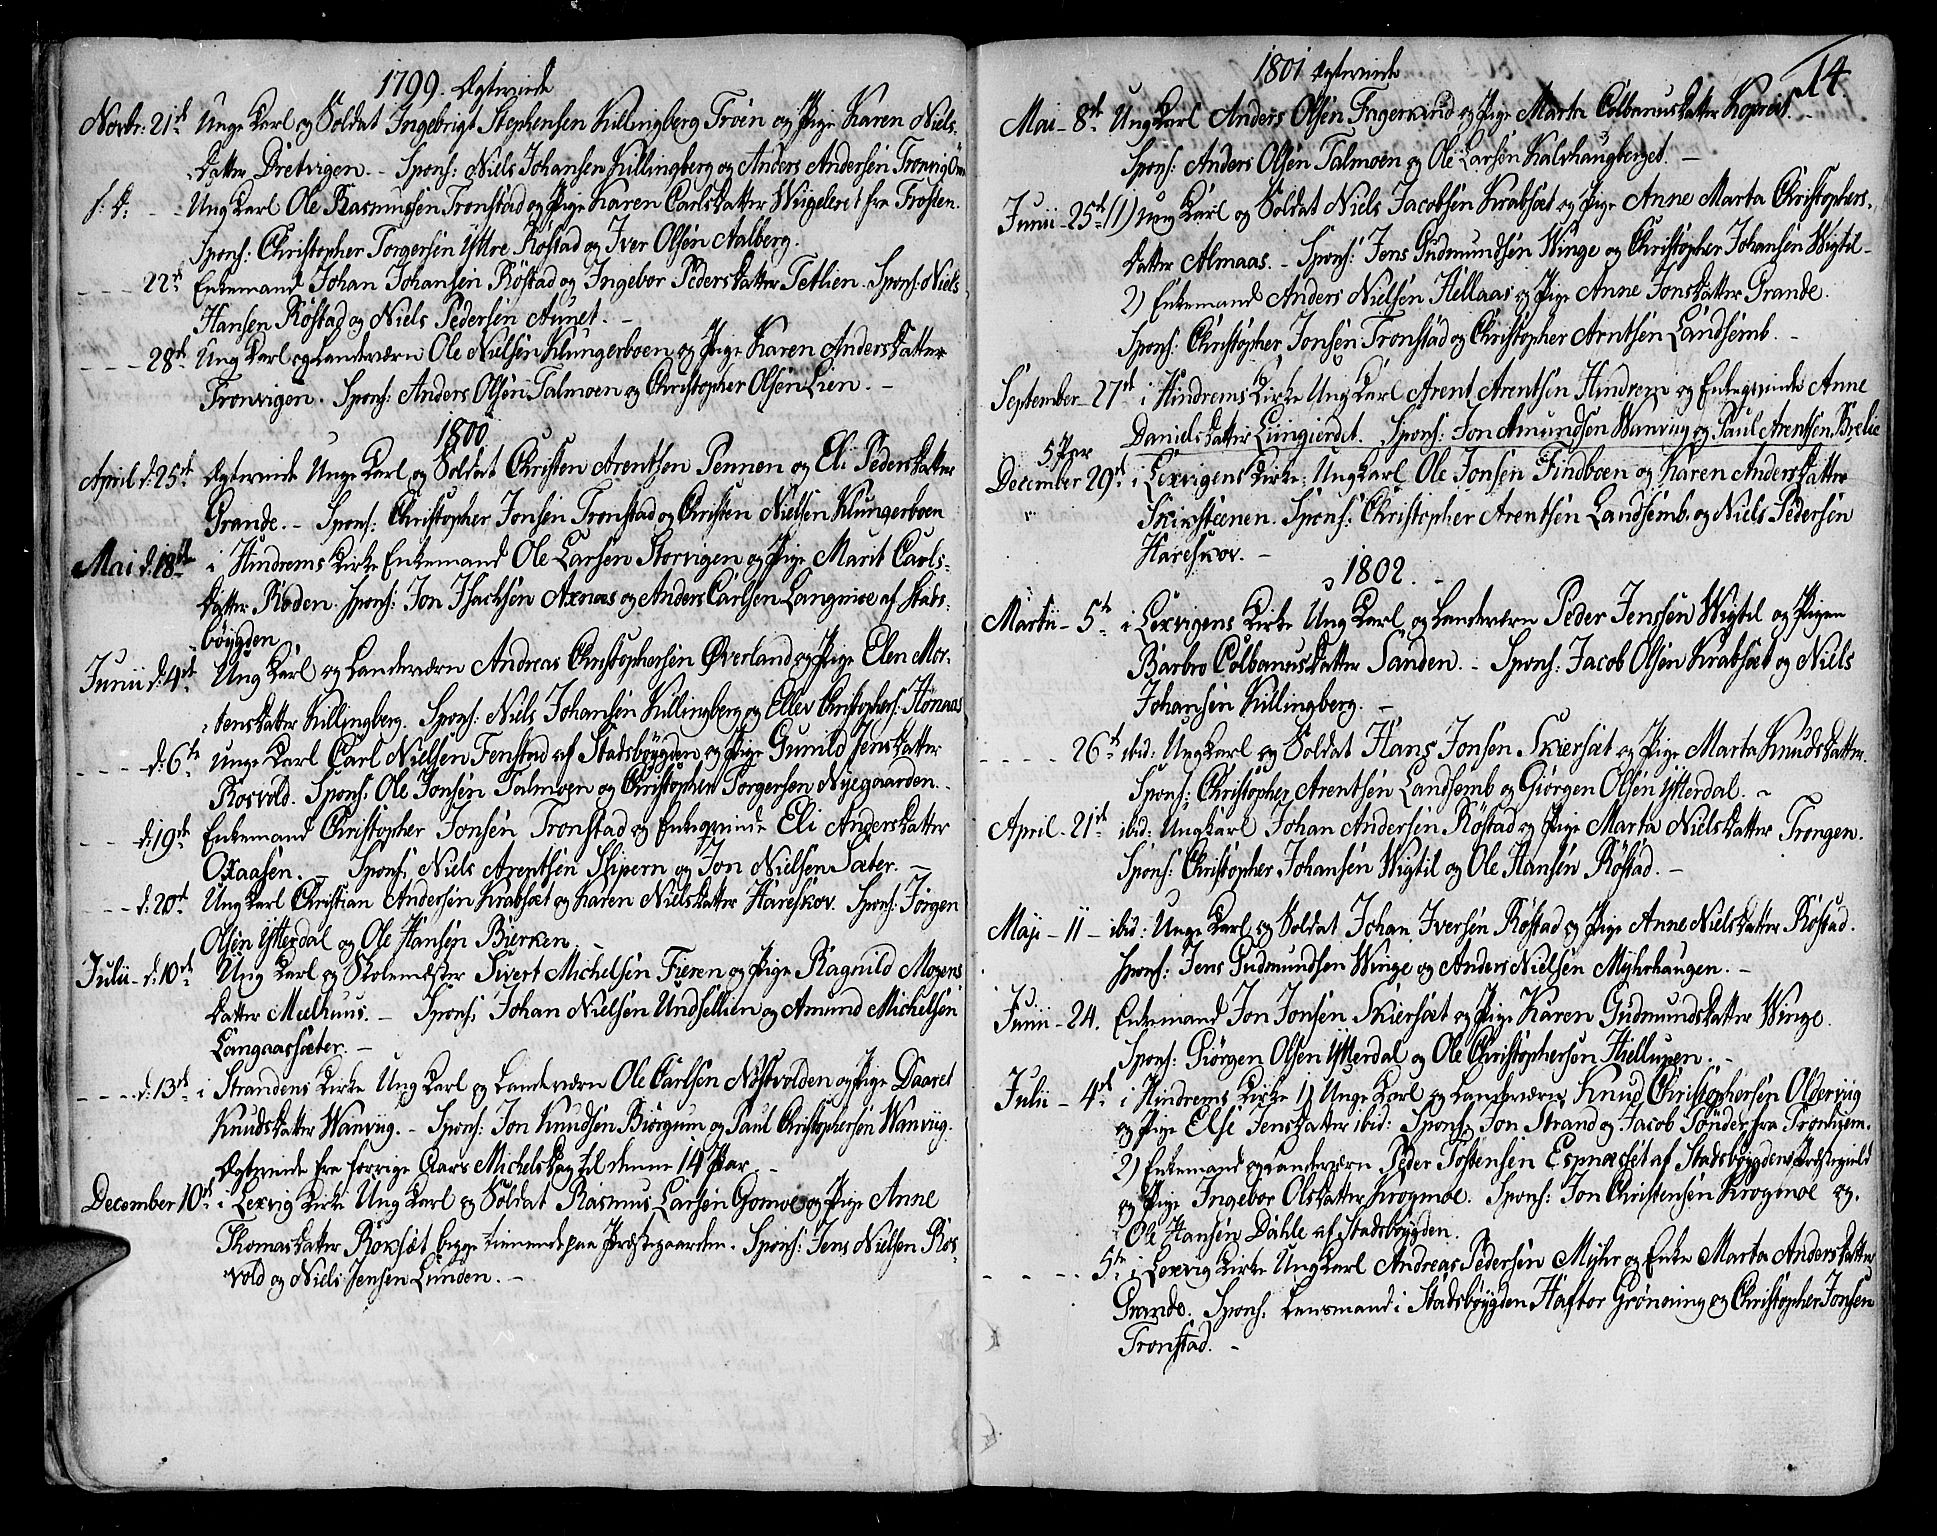 1799. Egteviede
Novbr: 21de Unge Karl og Soldat Ingebrigt Stephensen Killingberg Troen og Pige Karen Niels-
datter Dretvigen. - Spons: Niels Johansen Killingberg og Anders Andersen Tronvig
s: d: - - Ung Karl Ole Rasmusen Tronstad og Pige Karen Carlsdatter fra Frosten.
Spons: Christopher Torgersen Yttre Røstad og Iver Olsen Aalberg.
- - - 22de Enkemand Johan Johansen Røstad og Ingebor Pedersdatter Tetlien. Spons: Niels
Hansen Røstad og Niels Pedersen Aunet. -
- - - 28de Ung Karl og Landeværn Ole Nielsen Klungerboen og Pige Karen Andersdatter
Tronvigen. Spons: Anders Olsen Talmoen og Christopher Olsen Lien. -
1800
April d: 25de Egteviede Unge Karl og Soldat Christen Arentsen Pennen og Eli Pedersdatter
Grande. - Spons: Christopher Jonsen Tronstad og Christen Nielsen Klungerboen
Mai d: 18de i Hindrems Kirke Enkemand Ole Larsen Storvigen og Pige Marit Carls-
datter Røden. Spons: Jon Isachsen Axnæs og Anders Carlsen Langmoe af Stads-
bøygden
Junii d: 4de Ung Karl og Landeværn Andreas Christophersen Øverland og Pige Elen Mor-
tensdatter Killingberg. Spons: Niels Johansen Killingberg og Ellev Christophers: Hønaas
- - - d: 6te unge Karl Carl Nielsen Fenstad af Stadsbøygden og Pige Gunild Jensdatter
Rosvold. Spons: Ole Jonsen Talmoen og Christopher Torgersen Nyegaarden.
- - - d: 19de Enkemand Christopher Jonsen Tronstad og Enkeqvinde Eli Andersdatter
Oxaasen. - Spons: Niels Arentsen Skipern og Jon Nielsen Sæter. -
- - d: 20de Ung Karl Christian Andersen Krabsæt og Karen Nielsdatter Hareskov. Spons: Jørgen
Olsen Ytterdal og Ole Hansen Bierken. -
Julii - d: 10de Ung Karl og Skolemester Sivert Michelsen Fieren og Pige Ragnild Mogens
datter Meelhuus. - Spons: Johan Nielsen Undsellien og Amund Michelsen
Langaassæter. -
- - - d: 13de i Strandens Kirke Ung Karl og Landeværn Ole Carlsen Nøstvolden og Pige Daaret
Knudsdatter Wanvig. - Spons: Jon Knudsen Biørgum og Paul Christophersen Wanvig.
Egteviede fra forrige Aars Michelsdag til denne 14 Par. -
December 10de i Lexvig Kirke Ung Karl og Soldat Rasmus Larsen Gomoe og Pige Anne
Thomasdatter Røksæt begge tienende paa Præstegaarden. Spons: Jens Nielsen Ros-
vold og Niels Jensen Lunden. -
1801 Egteviede
14.
Mai - 8de Ung Karl Anders Olsen Fagerxud og Pige Marta Colbanusdatter Kopreit. -
Spons: Anders Olsen Talmoen og Ole Larsen Kalvhaugberget. -
Junii - 25de (1) ung Karl og Soldat Niels Jacobsen Krabsæt og Pige Anne Marta Christophers-
datter Almaas. - Spons: Jens Gudmundsen Winge og Christopher Johansen Wigtil -
2) Enkemand Anders Nielsen Hellaas og Pige Anne Jonsdatter Grande.
Spons: Christopher Jonsen Tronstad og Christopher Arntsen Landsemb. -
September - 27de i Hindrems Kirke Ung Karl Arent Arentsen Hindrem og Enkeqvinde Anne
Danielsdatter Liungierdet. Spons: Jon Amundsen Wanvig og Paul Arentsen Brelie
5 Par
December 29de i Lexvigens Kirke: Ung Karl Ole Jonsen Findboen og Karen Andersdatter
Skirsteenen. Spons: Christopher Arentsen Landsemb. og Niels Pedersen
Hareskov. -
1802. -
Martii - 5te i Lexvigens Kirke Ung Karl og Landeværn Peder Jenssen Wigtil og Pigen
Barbro Colbanusdatter Sanden. - Spons: Jacob Olsen Krabsæt og Niels
Johansen Killingberg. -
- - - - - 26te ibid: Ung Karl og Soldat Hans Jonsen Skiersæt og Pige Marta Knudsdatter.
Spons: Christopher Arentsen Landsemb og Giørgen Olsen Ytterdal. -
April - 21de ibid: Ung Karl Johan Andersen Røstad og Pige Marta Nielsdatter Trongen.
Spons: Christopher Johansen Wigtil og Ole Hansen Røstad. -
Maji - 11 - ibid: Unge Karl og Soldat Johan Iversen Røstad og Pige Anne Nielsdatter Røstad.
Spons: Jens Gudmundsen Winge og Anders Nielsen Myhrhaugen. -
Junii - 24. Enkemand Jon Jonsen Skiersæt og Pige Karen Gudmundsdatter Winge.
Spons: Giørgen Olsen Ytterdal og Ole Christophersen Hiellupen. -
Julii - 4de i Hindrems Kirke 1) Unge Karl og Landeværn Knud Christophersen Oldervig
og Pige Else Jensdatter ibid: Spons: Jon Strand og Jacob Sønder fra Tronhjem.
2) Enkemand og Landeværn Peder Tostensen Espnæset af Stadsbøygdens Præstegield
og Pige Ingebor Olsdatter Krogmoe. Spons: Jon Christensen Krogmoe og
Ole Hansen Dahle af Stadsbøygden.
- - - - 5te i Lexvig Kirke Ung Karl Andreas Pedersen Myhr og Enke Marta Andersdatter
Grande. Spons: Lensmand i Stadsbøygden Haftor Grønning og Christopher Jonsen
Tronstad. -